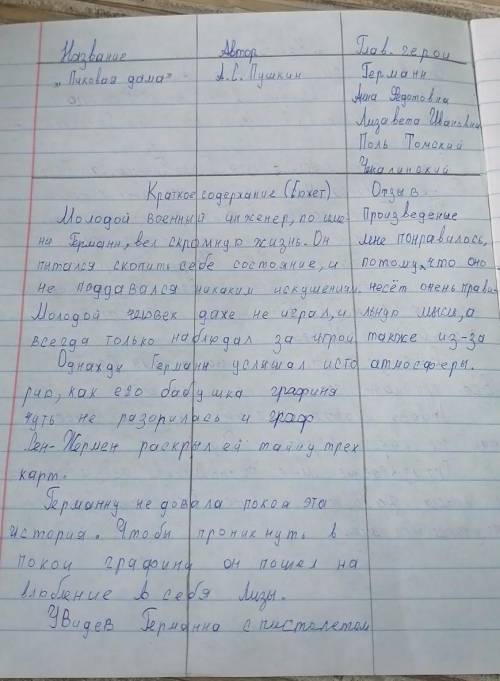 Название Автор Глав. герои
„Пиковая дама” А.С. Пушкин Германн
Анна Федотовна
Лизавета Ивановна
Поль Томский
Чекалинский
Краткое содержание (Сюжет) Отзыв
Молодой военный инженер, по име- Произведение
ни Германн, вел скромную жизнь. Он мне понравилось,
питался скопить себе состояние, и потому, что оно
не поддавался никаким искушениям. несёт очень прави-
Молодой человек даже не играл, и льную мысль, а
всегда только наблюдал за игрой также из-за
Однажды Германн услышал исто атмосферы.
рию, как его бабушка графиня
чуть не разорилась и граф
Сен-Жермен раскрыл ей тайну трех
карт.
Германну не довала покоя эта
история. Чтобы проникнуть в
покои графини он пошел на
влюбление в себя Лизы.
Увидев Германна с пистолетом